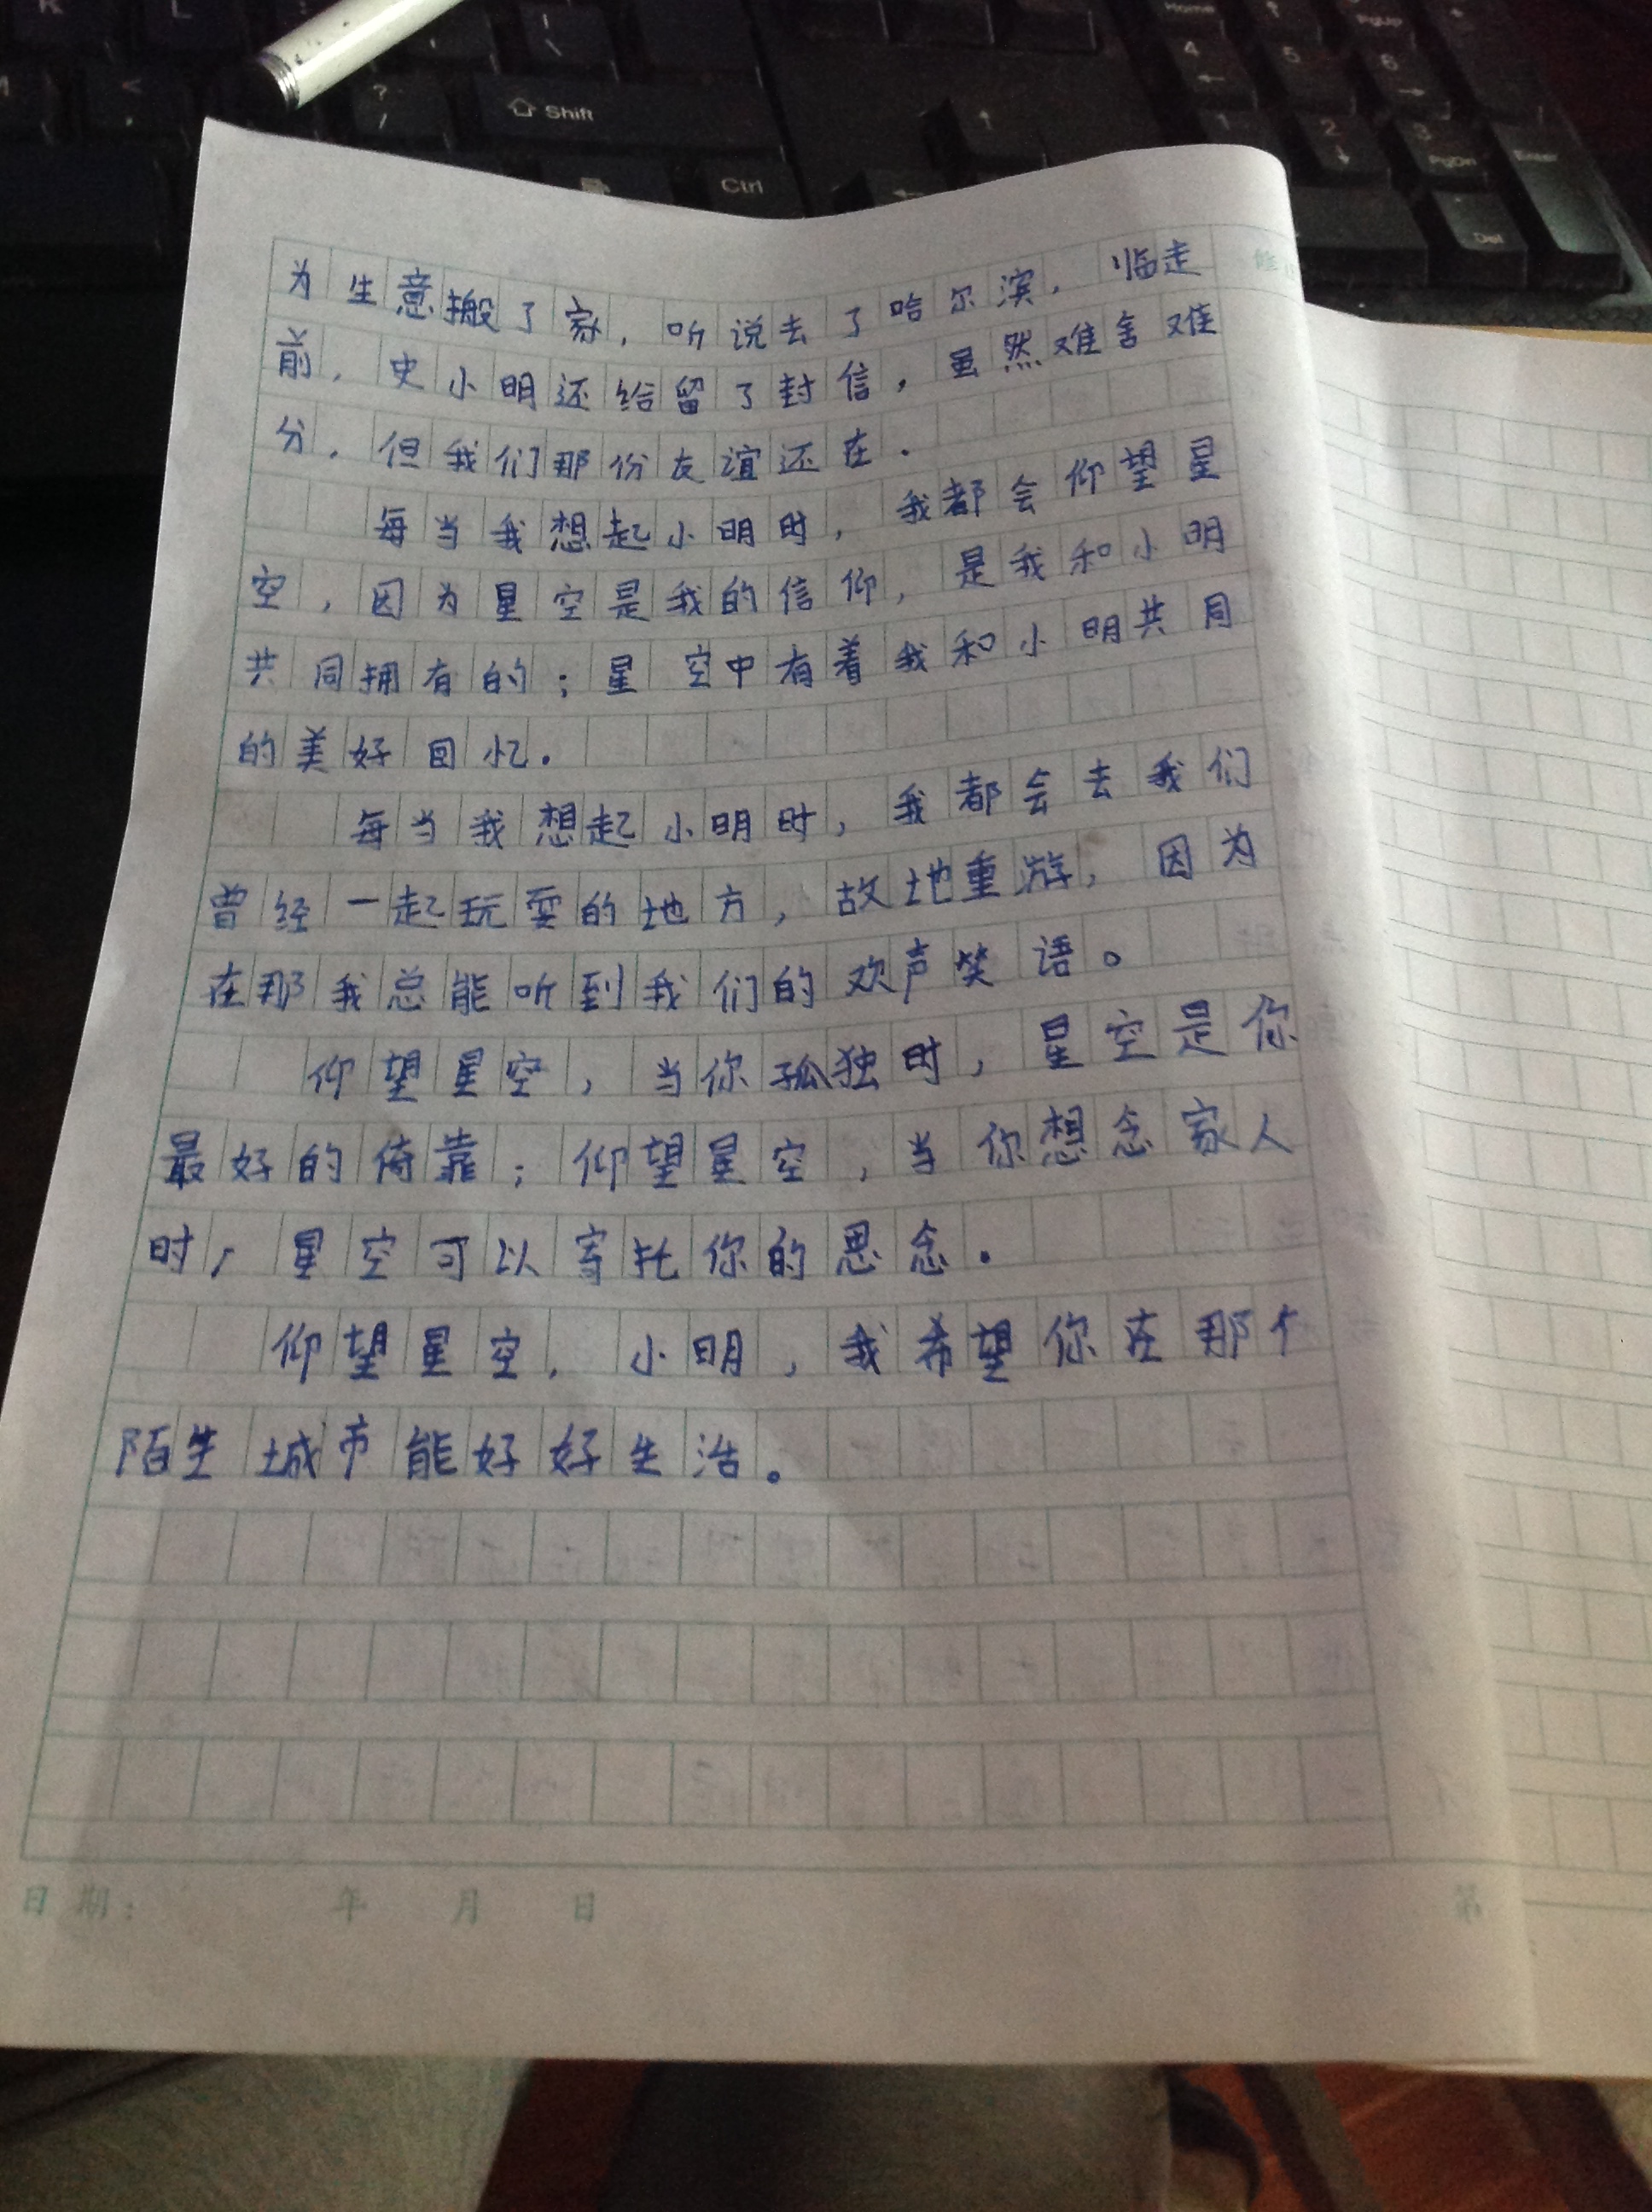 为生意搬了家，听说去了哈尔滨，临走
前，史小明还给留了封信，虽然难舍难
分，但我们那份友谊还在．
每当我想起小明时，我都会仰望星
空，因为星空是我的信仰，是我和小明
共同拥有的；星空中有着我和小明共同
的美好回忆．
每当我想起小明时，我都会去我们
曾经一起玩耍的地方，故地重游，因为
在那我总能听到我们的欢声笑语。
仰望星空，当你孤独时，星空是你
最好的倚靠；仰望星空，当你想念家人
时，星空可以寄托你的思念．
仰望星空，小明，我希望你在那个
陌生城市能好好生活。
日期： 年 月 日
第
Shift
Ctrl
Home
PgUp
4
5
6
1
2
3
PgDn
Enter
Del
K
L
?
/